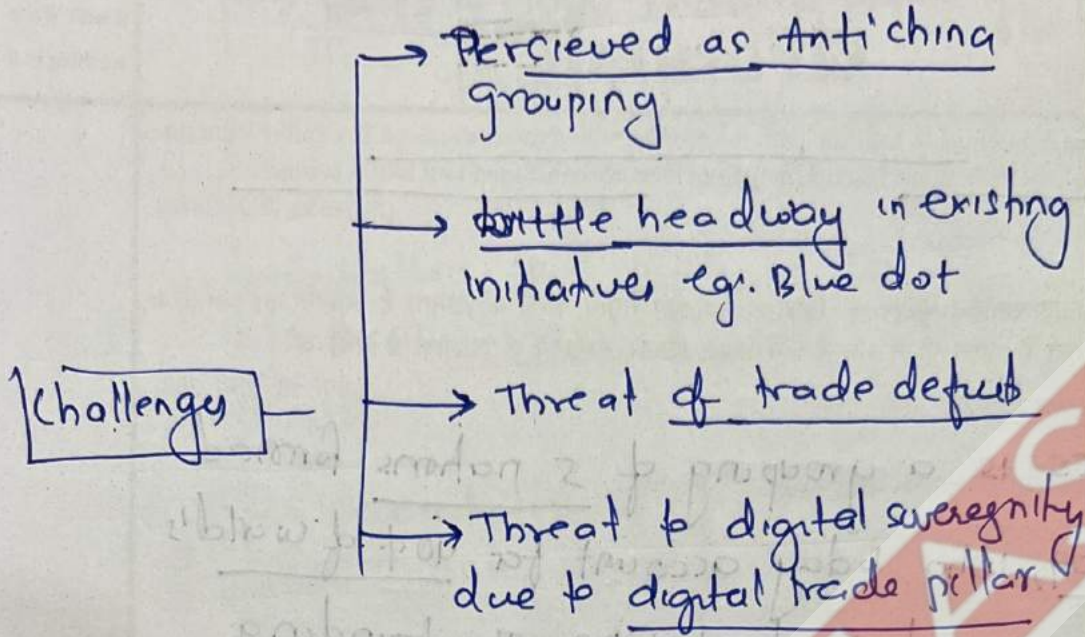 Percieved as Antichina
grouping
little headway in existing
initiatives eg. Blue dot
Challenges
Threat of trade deficits
Threat to digital sovereignity
due to digital trade pillar